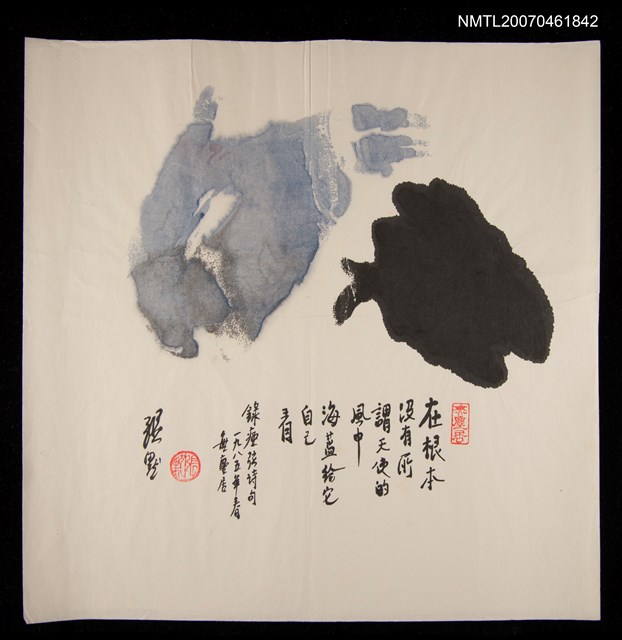 NMTL20070461842
在根本
没有所
謂天使的
風中
海藍給它
自己
看
錄瘂弦詩句
一九八五年春
無塵居
張默